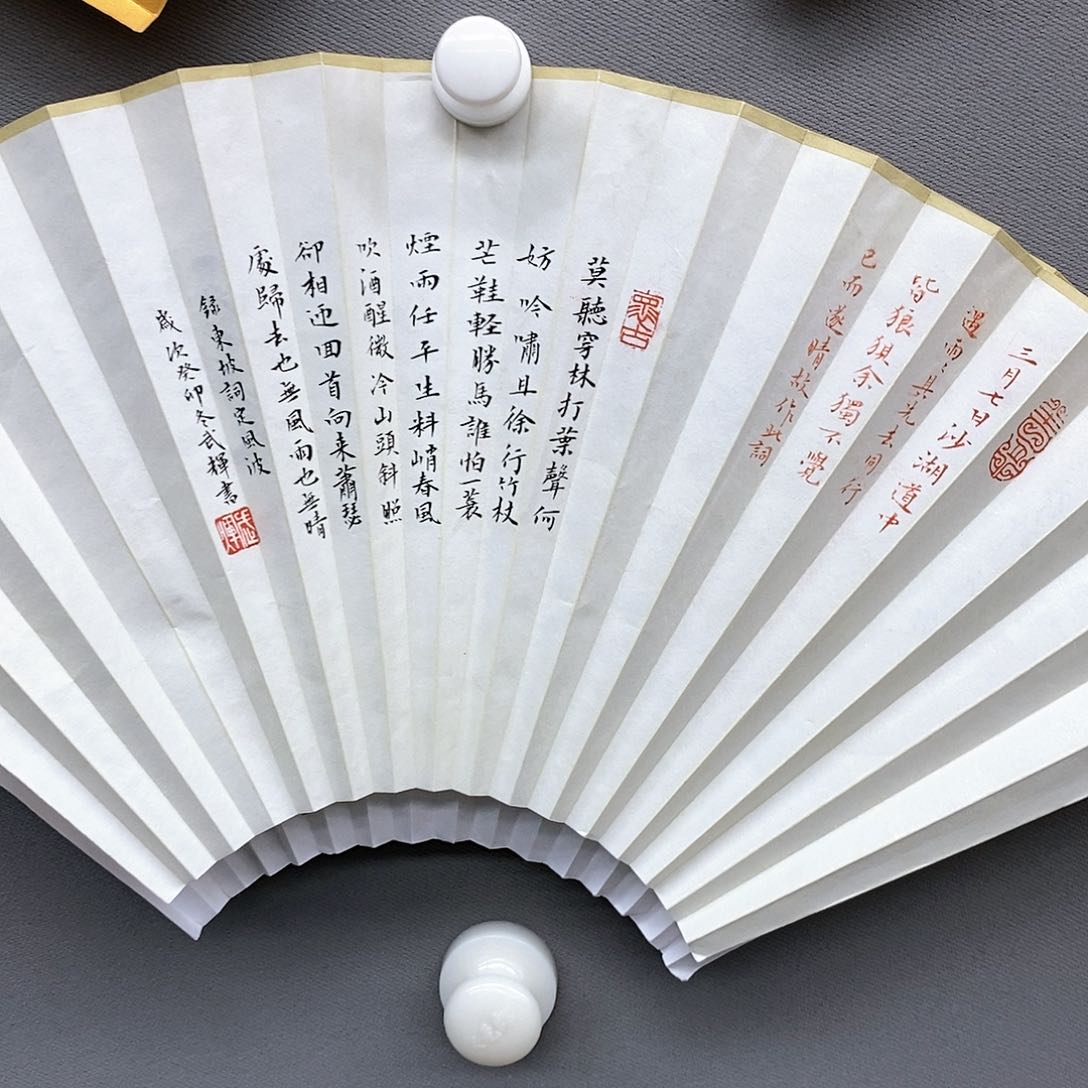 三月七日沙湖道中
遇雨〻具先去同行
皆狼狽余獨不覺
已而遂晴故作此詞
莫聽穿林打葉聲何
妨吟嘯且徐行竹杖
芒鞋輕勝馬誰怕一蓑
煙雨任平生料峭春風
吹酒醒微冷山頭斜照
卻相迎回首向来蕭瑟
處歸去也無風雨也無晴
錄東坡詞定風波
歲次癸卯冬武輝書
武輝